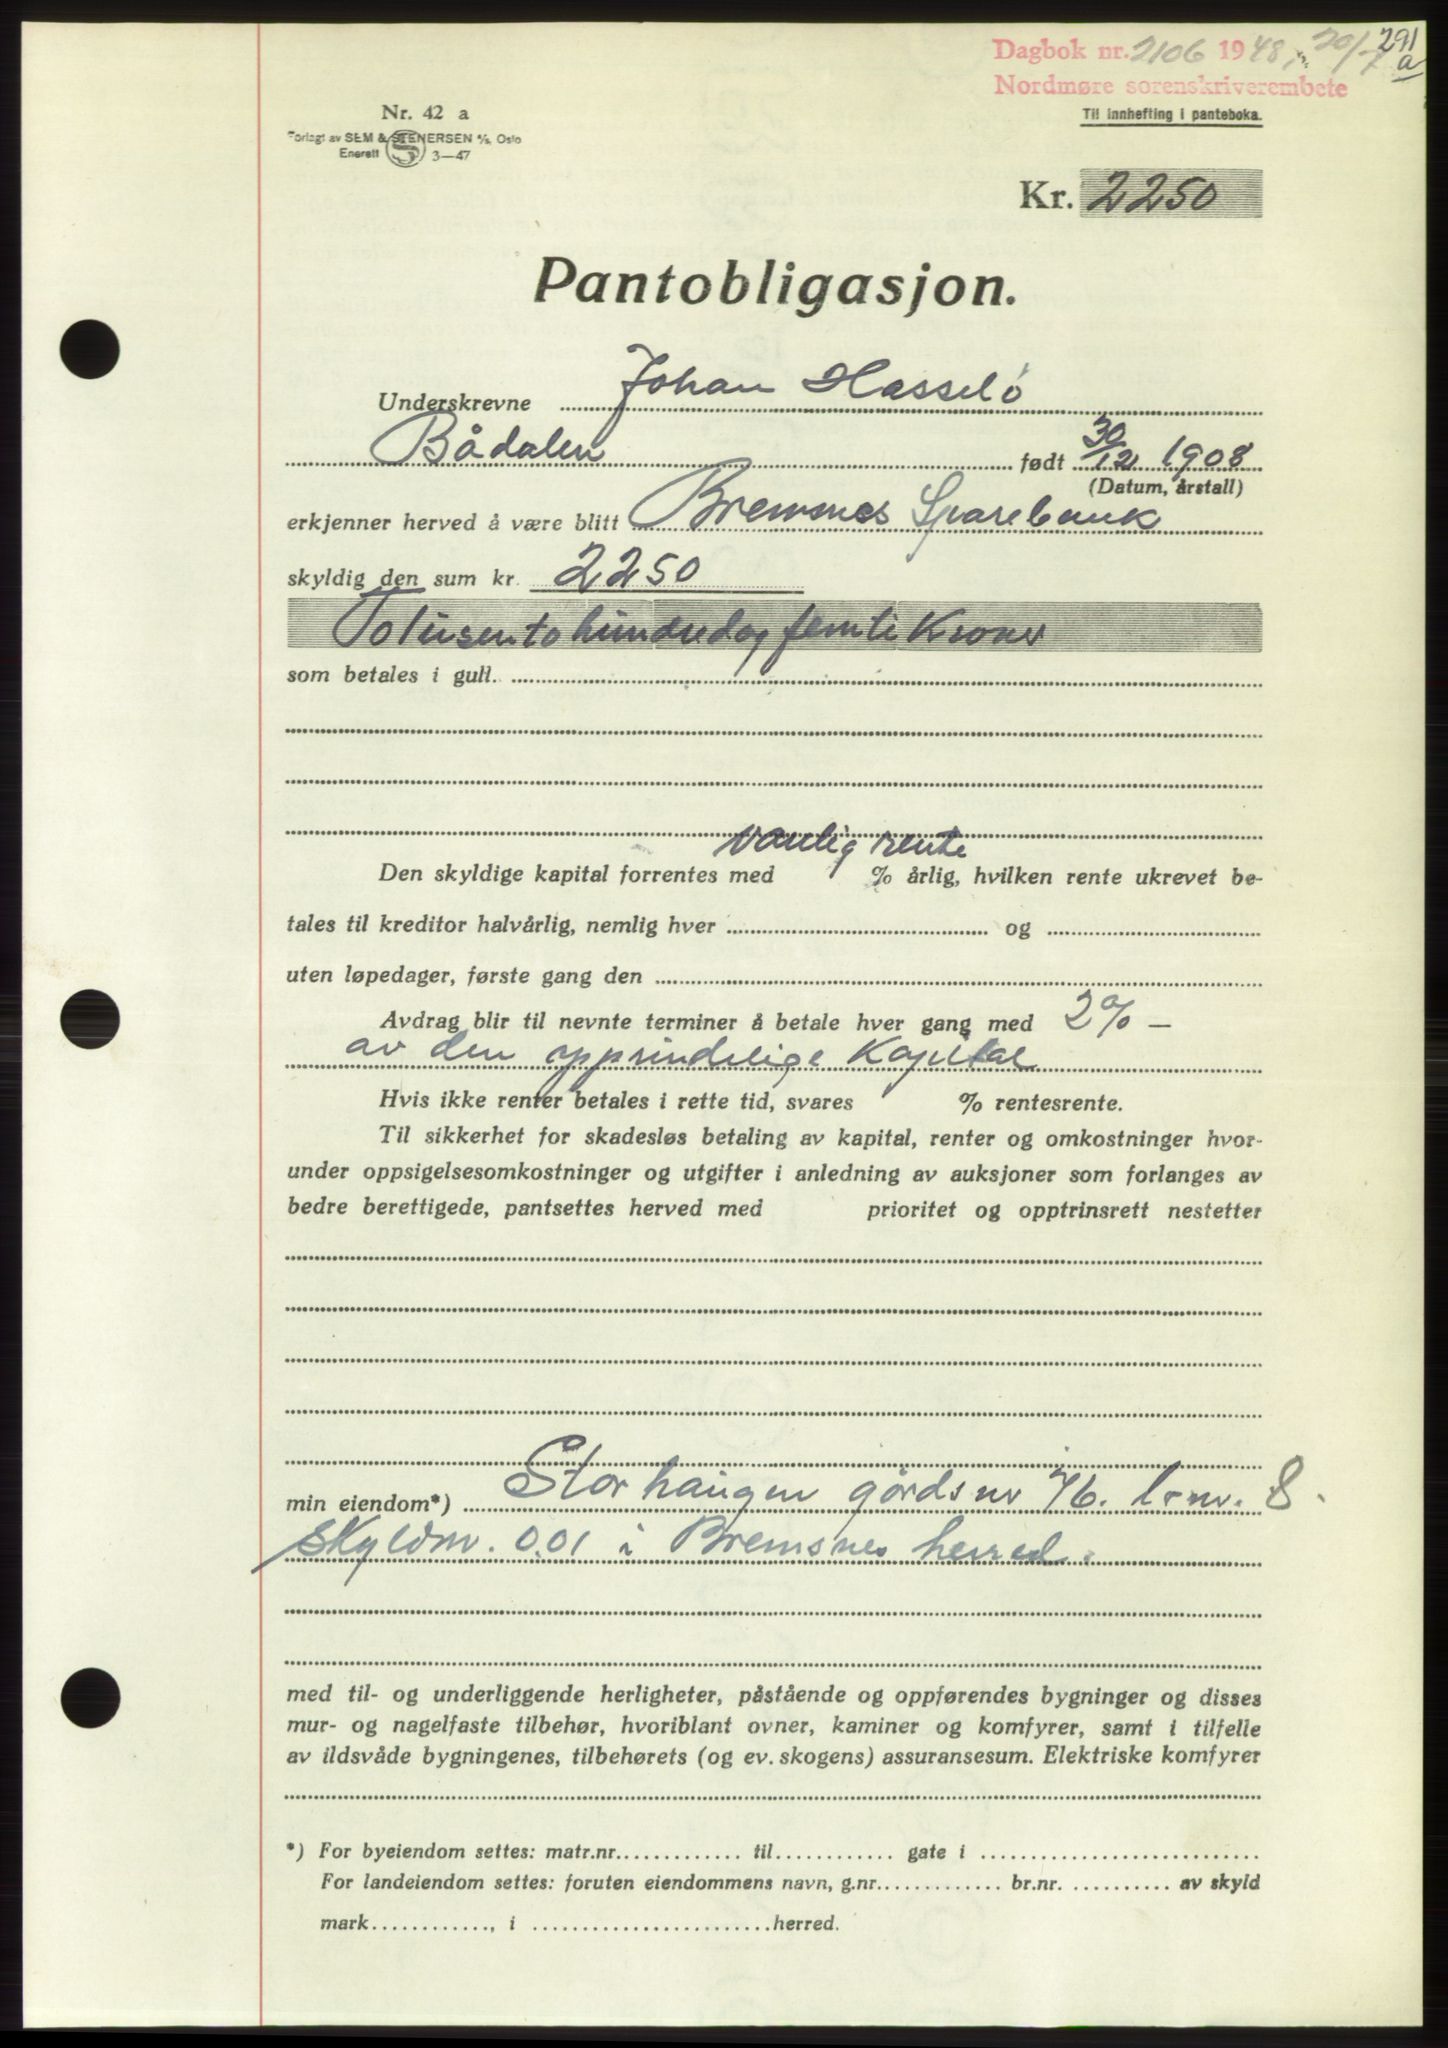 Dagbok nr. 2106 1948, 20/7 291
Nordmøre sorenskriverembete a
Til innhefting i panteboka.
Nr. 42 a
Forlagt av SEM & STENERSEN A/S, Oslo
Enerett S 3—47
Kr. 2250
Pantobligasjon.
Underskrevne Johan Hasselø
Bådalen født 30/12 1908
(Datum, årstall)
erkjenner herved å være blitt Bremsnes Sparebank
skyldig den sum kr. 2250
Totusentohundredogfemti Kroner
som betales i gull.
vanlig rente
Den skyldige kapital forrentes med % årlig, hvilken rente ukrevet be-
tales til kreditor halvårlig, nemlig hver og
uten løpedager, første gang den
Avdrag blir til nevnte terminer å betale hver gang med 2% —
av den opprindelige Kapital
Hvis ikke renter betales i rette tid, svares % rentesrente.
Til sikkerhet for skadesløs betaling av kapital, renter og omkostninger hvor-
under oppsigelsesomkostninger og utgifter i anledning av auksjoner som forlanges av
bedre berettigede, pantsettes herved med prioritet og opptrinsrett nestetter
min eiendom*) Storhaugen gårdsnr 76. br.nr. 8.
skyldm. 0.01 i Bremsnes herred.
med til- og underliggende herligheter, påstående og oppførendes bygninger og disses
mur- og nagelfaste tilbehør, hvoriblant ovner, kaminer og komfyrer, samt i tilfelle
av ildsvåde bygningenes, tilbehørets (og ev. skogens) assuransesum. Elektriske komfyrer
*) For byeiendom settes: matr.nr. til gate i
For landeiendom settes: foruten eiendommens navn, g.nr. br.nr. av skyld
mark, i herred.